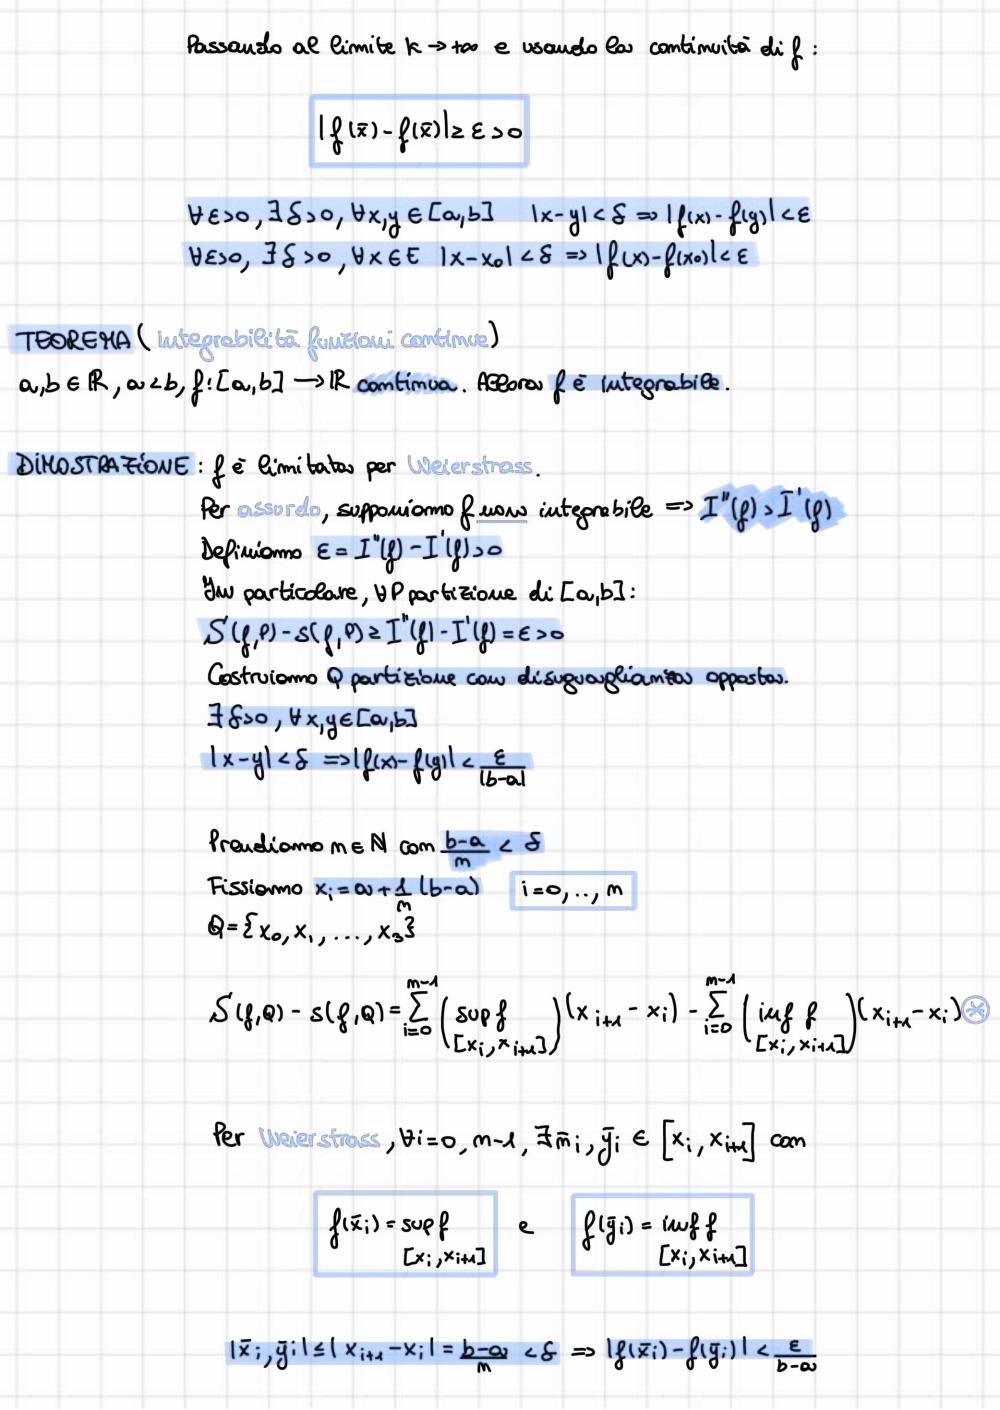 Passando al limite k → +∞ e usando la continuità di f :
|f(x̄) - f(x̄)| ≥ ε > 0
∀ε>0, ∃δ>0, ∀x,y ∈ [a,b] |x-y| < δ ⇒ |f(x) - f(y)| < ε
∀ε>0, ∃δ>0, ∀x∈E |x-x₀| < δ ⇒ |f(x)-f(x₀)| < ε
TEOREMA (integrabilità funzioni continue)
a,b ∈ ℝ, a<b, f:[a,b] → ℝ continua. Allora f è integrabile.
DIMOSTRAZIONE : f è limitata per Weierstrass.
Per assurdo, supponiamo f non integrabile ⇒ I''(f) > I'(f)
Definiamo ε = I''(f) - I'(f) > 0
In particolare, ∀P partizione di [a,b] :
S(f,P) - s(f,P) ≥ I''(f) - I'(f) = ε > 0
Costruiamo Q partizione con disuguaglianza opposta.
∃δ>0, ∀x,y∈[a,b]
|x-y| < δ ⇒ |f(x) - f(y)| < ε/|b-a|
Prendiamo m ∈ ℕ con (b-a)/m < δ
Fissiamo xᵢ = a + 1/m (b-a) i=0,..,m
Q = {x₀, x₁, ..., x₃}
S(f,Q) - s(f,Q) = ∑_{i=0}^{m-1} (sup f [xᵢ, xᵢ₊₁]) (xᵢ₊₁ - xᵢ) - ∑_{i=0}^{m-1} (inf f [xᵢ, xᵢ₊₁]) (xᵢ₊₁ - xᵢ) ⊛
Per Weierstrass, ∀i=0, m-1, ∃m̄ᵢ, ȳᵢ ∈ [xᵢ, xᵢ₊₁] con
f(x̄ᵢ) = sup f [xᵢ, xᵢ₊₁] e f(ȳᵢ) = inf f [xᵢ, xᵢ₊₁]
|x̄ᵢ, ȳᵢ| ≤ |xᵢ₊₁ - xᵢ| = (b-a)/m < δ ⇒ |f(x̄ᵢ) - f(ȳᵢ)| < ε/(b-a)